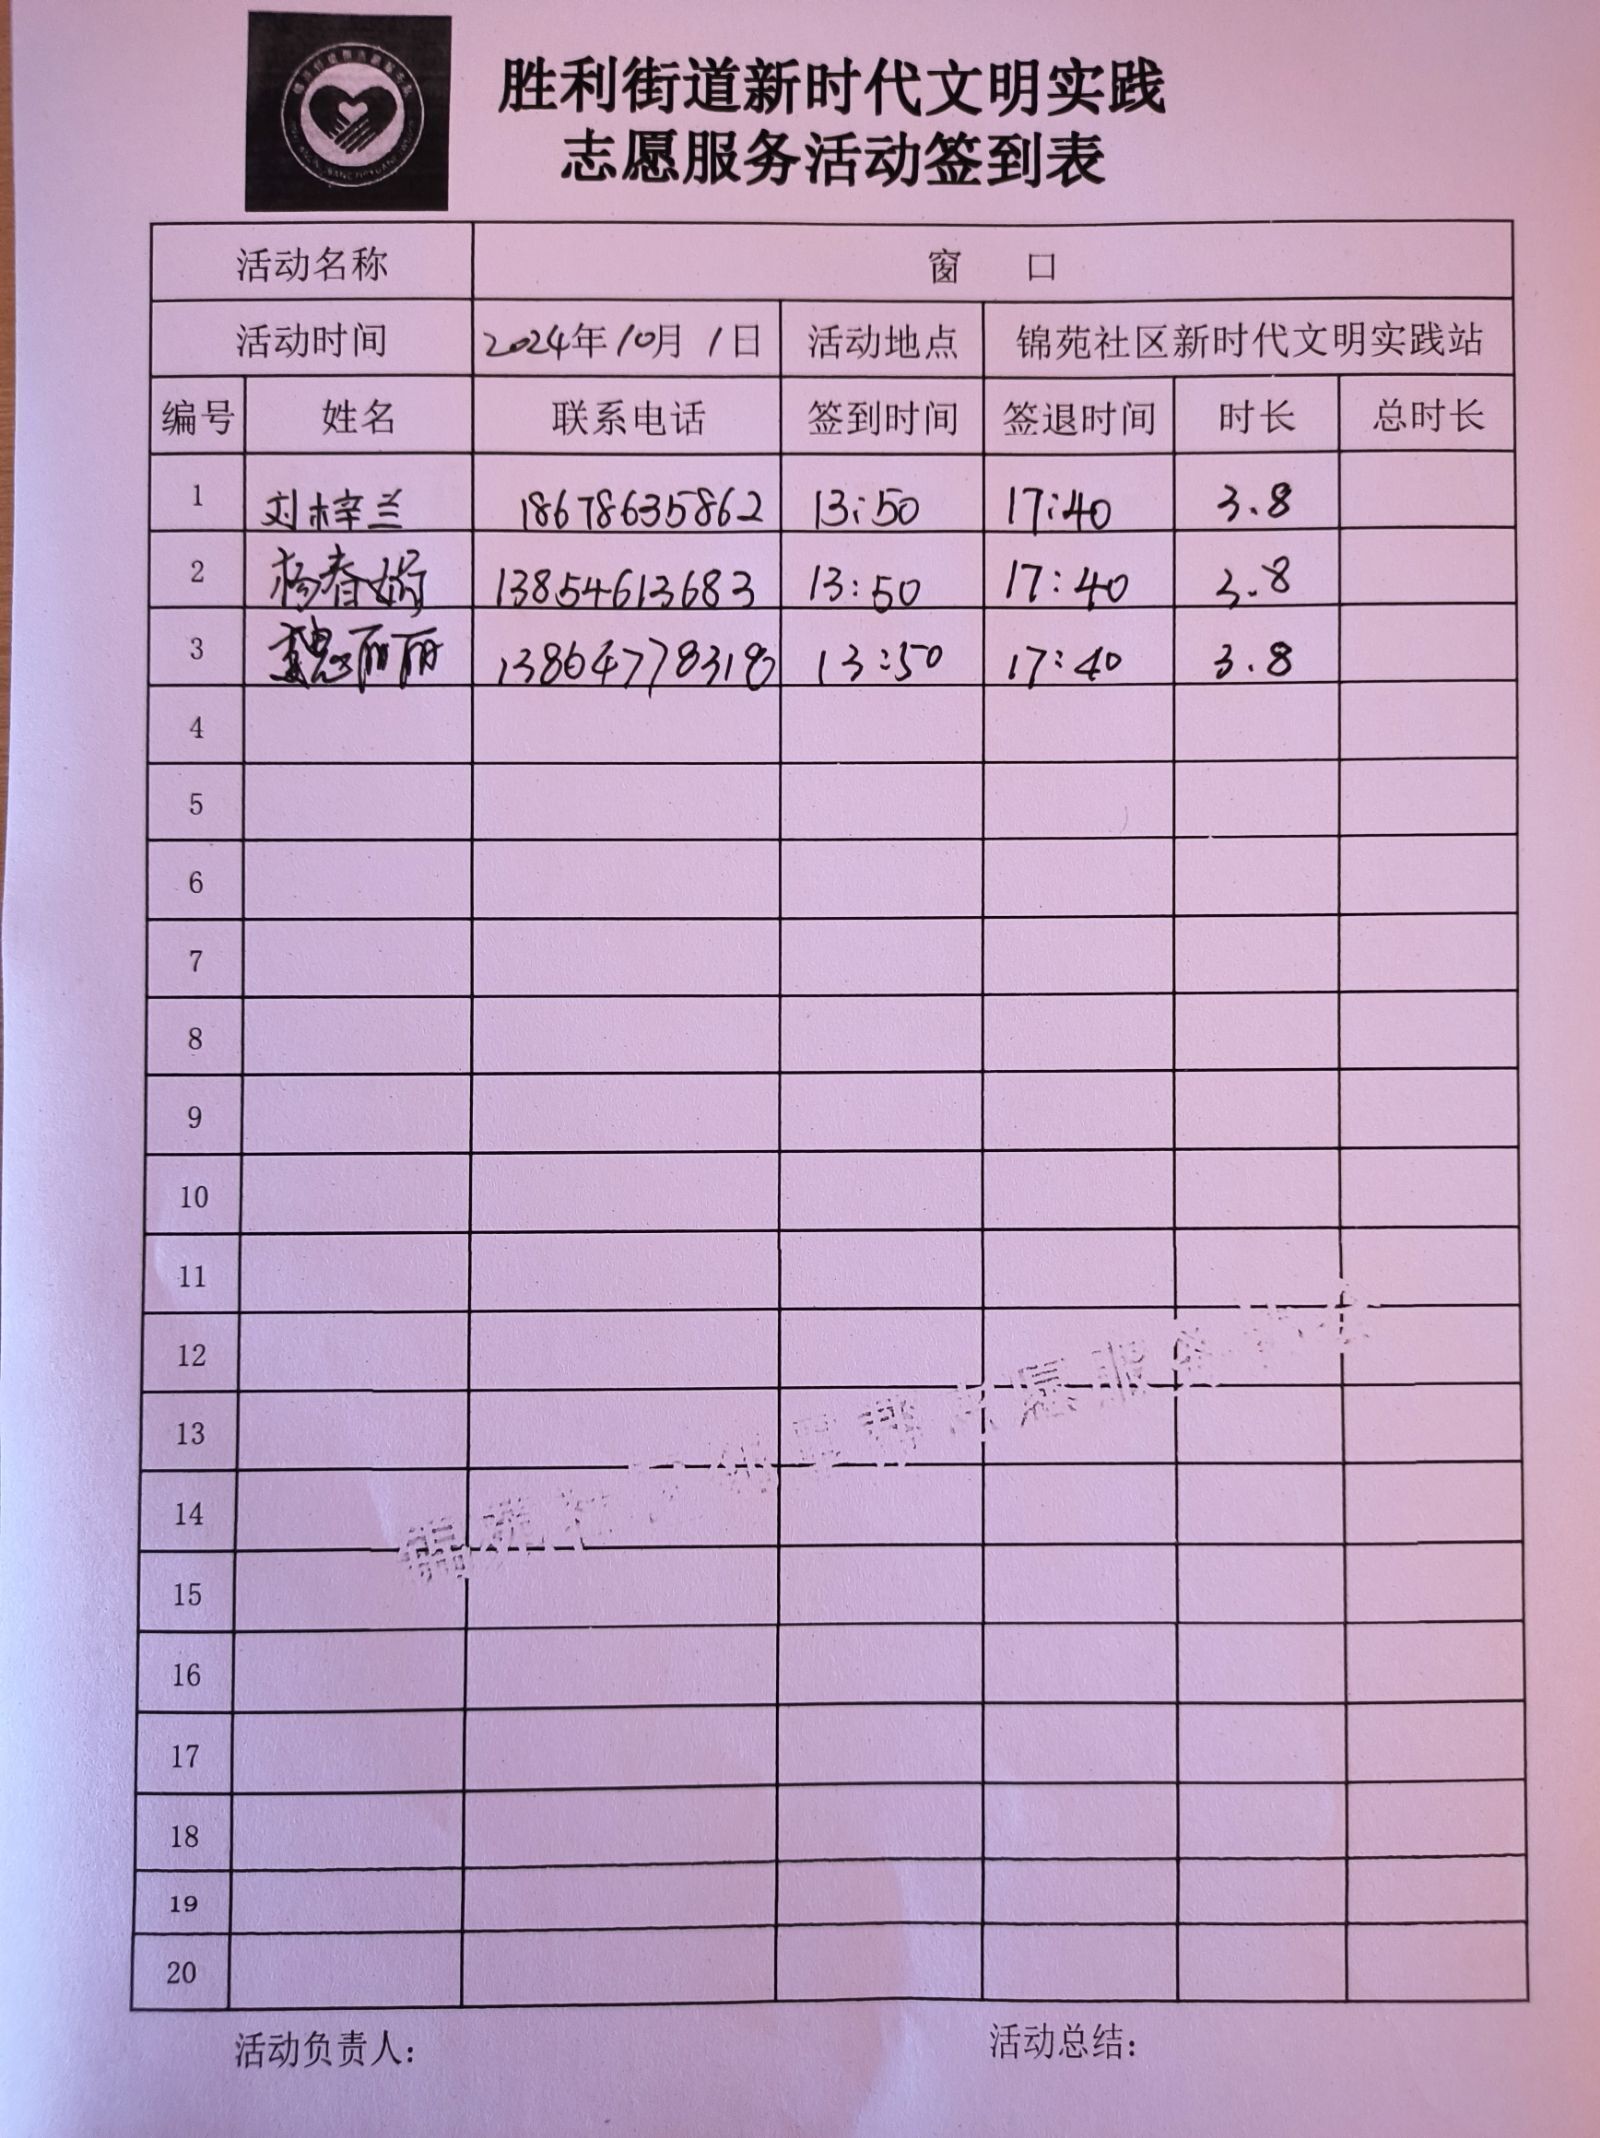 胜利街道新时代文明实践
志愿服务活动签到表
活动名称 窗 口
活动时间 2024年10月1日 活动地点 锦苑社区新时代文明实践站
编号 姓名 联系电话 签到时间 签退时间 时长 总时长
1 刘梓兰 18678635862 13:50 17:40 3.8
2 杨春娟 13854613683 13:50 17:40 3.8
3 魏丽丽 13864778318 13:50 17:40 3.8
4
5
6
7
8
9
10
11
12
13
14
15
16
17
18
19
20
活动负责人: 活动总结: